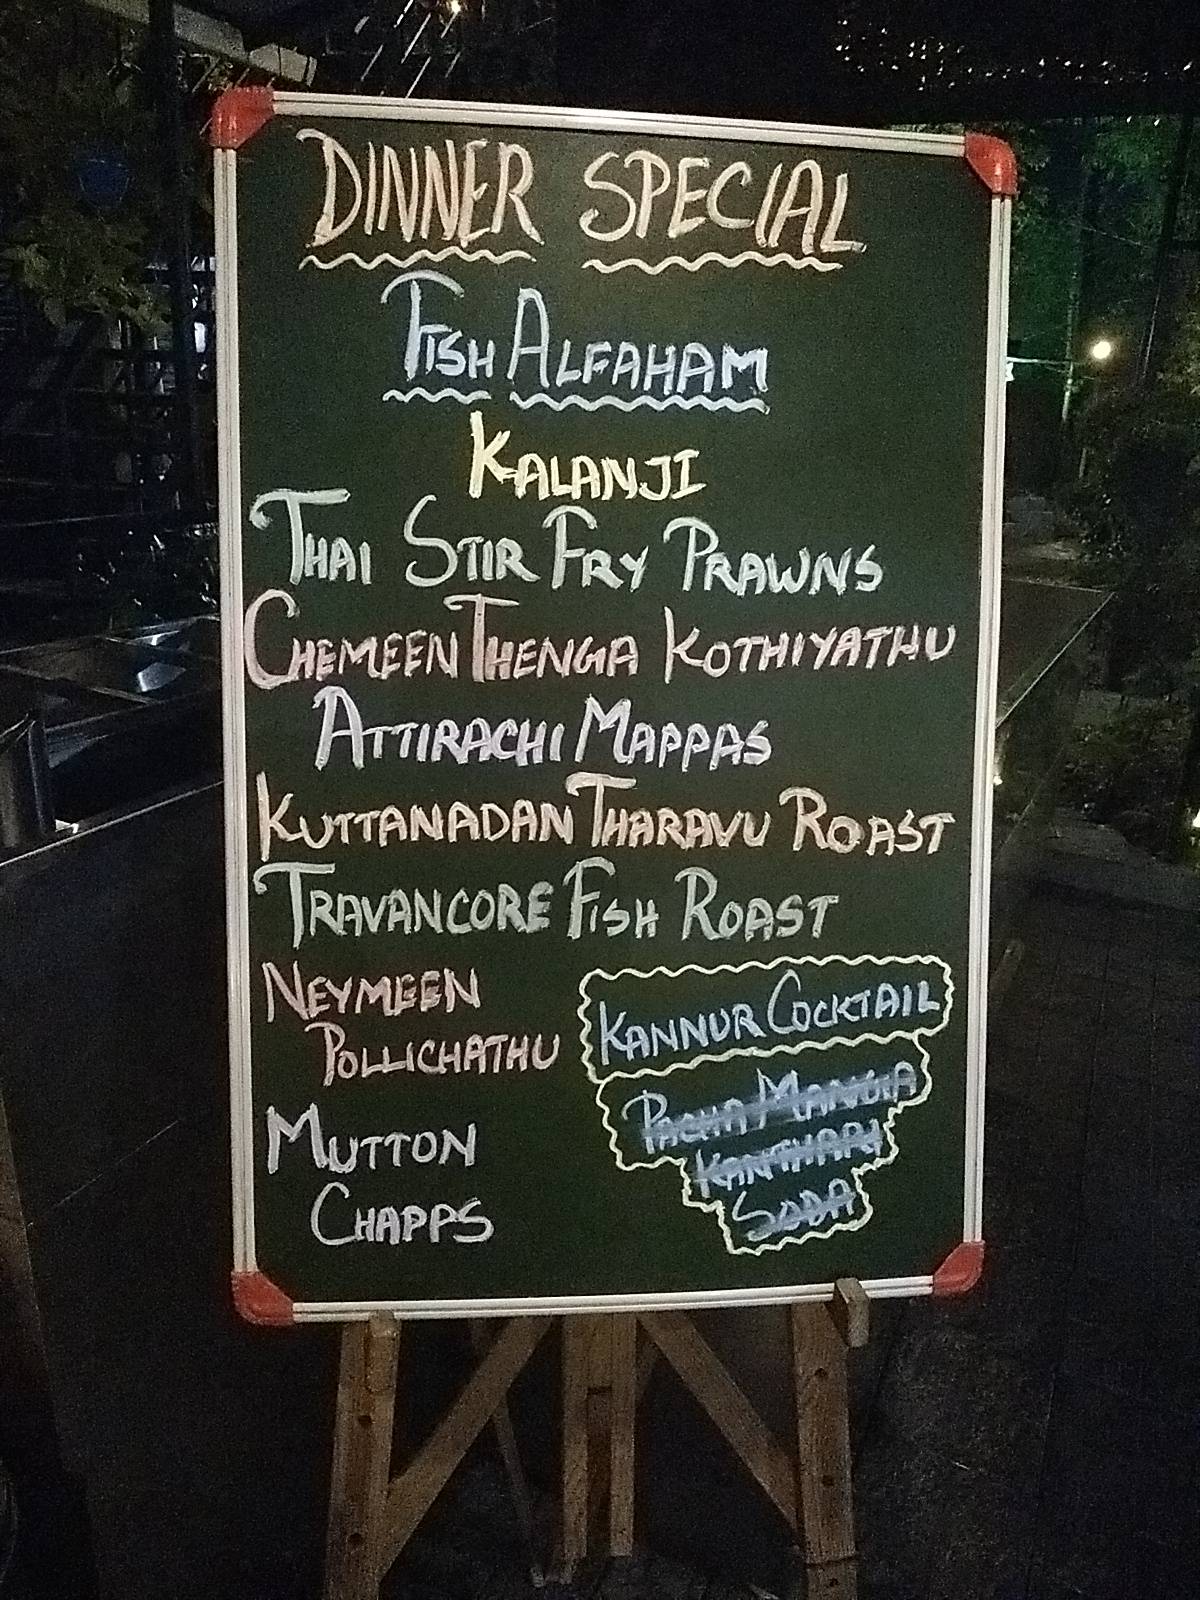 DINNER SPECIAL
FISH ALFAHAM
KALANJI
THAI STIR FRY PRAWNS
CHEMEEN THENGA KOTHIYATHU
ATTIRACHI MAPPAS
KUTTANADAN THARAVU ROAST
TRAVANCORE FISH ROAST
NEYMEEN
POLLICHATHU
MUTTON
CHAPPS
KANNUR COCKTAIL
PACHA MANGA
KANTHARI
SODA